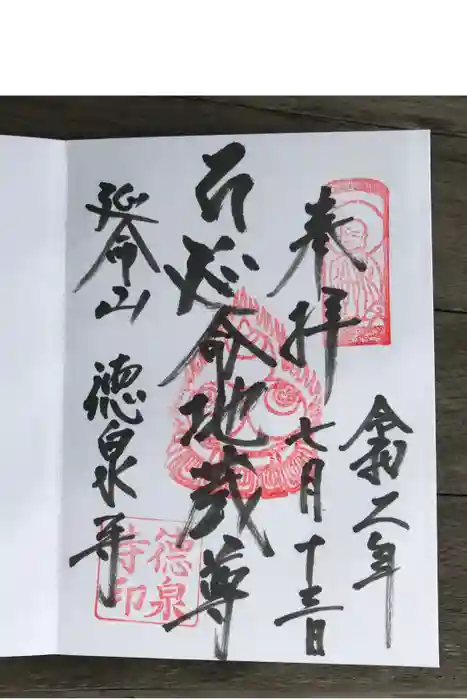 奉拝
令和二年
七月十三日
延命地蔵尊
延命山 徳泉寺
徳泉寺印